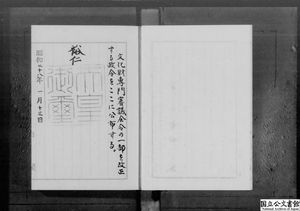 文化財専門審議会令の一部を改正
する政令をここに公布する。
裕仁
天皇
御璽
昭和二十八年一月十三日
国立公文書館
National Archives of Japan